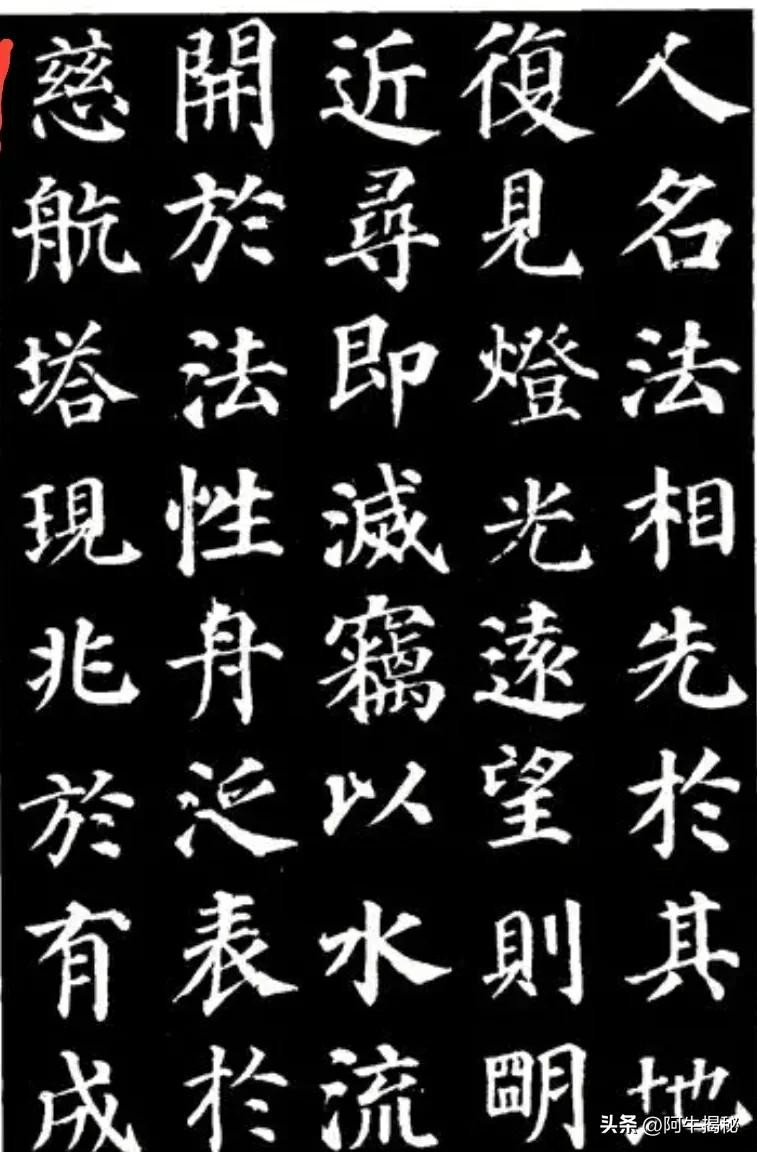 人名法相先於其地
復見燈光遠望則明
近尋即滅竊以水流
開於法性舟泛表於
慈航塔現兆於有成
头条 @阿牛揭秘